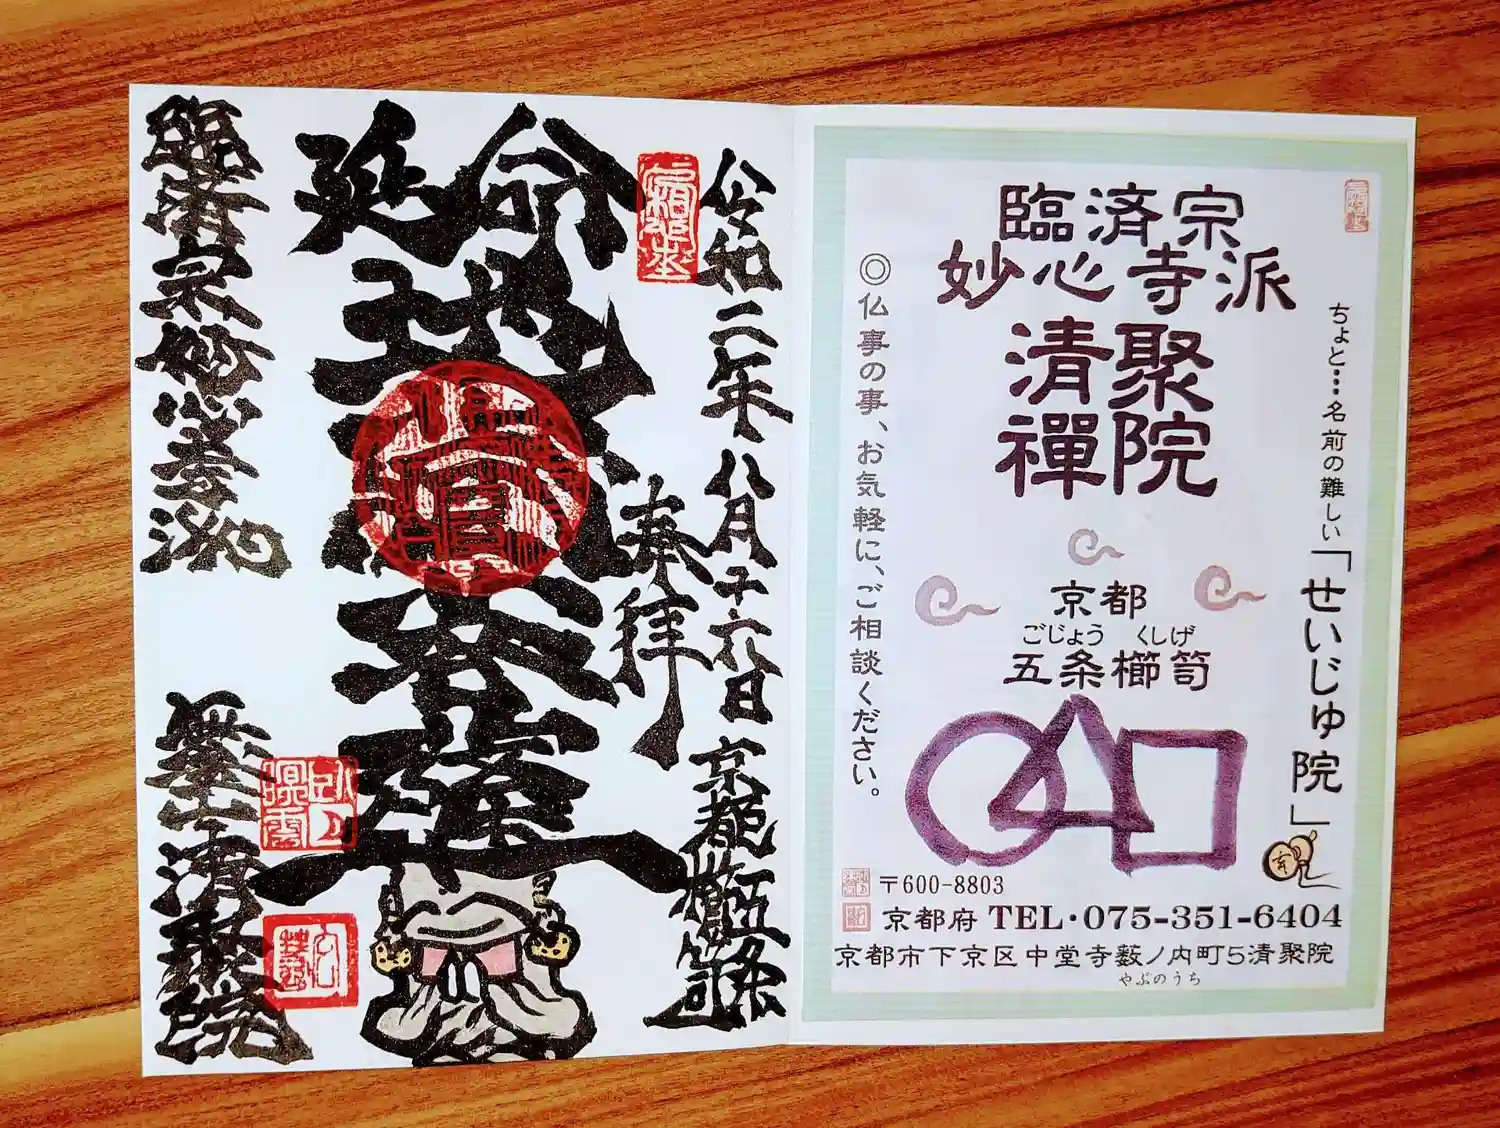 令和二年八月十六日
京都五条櫛笥
奉拝
延命
地蔵
菩薩
臨済宗妙心寺派
清聚院
ちょと…名前の難しい「せいじゅ院」
臨済宗
妙心寺派
清聚
禪院
京都
ごじょう くしげ
五条櫛笥
◎仏事の事、お気軽に、ご相談ください。
〒600-8803
京都府 TEL・075-351-6404
京都市下京区中堂寺薮ノ内町5清聚院
やぶのうち